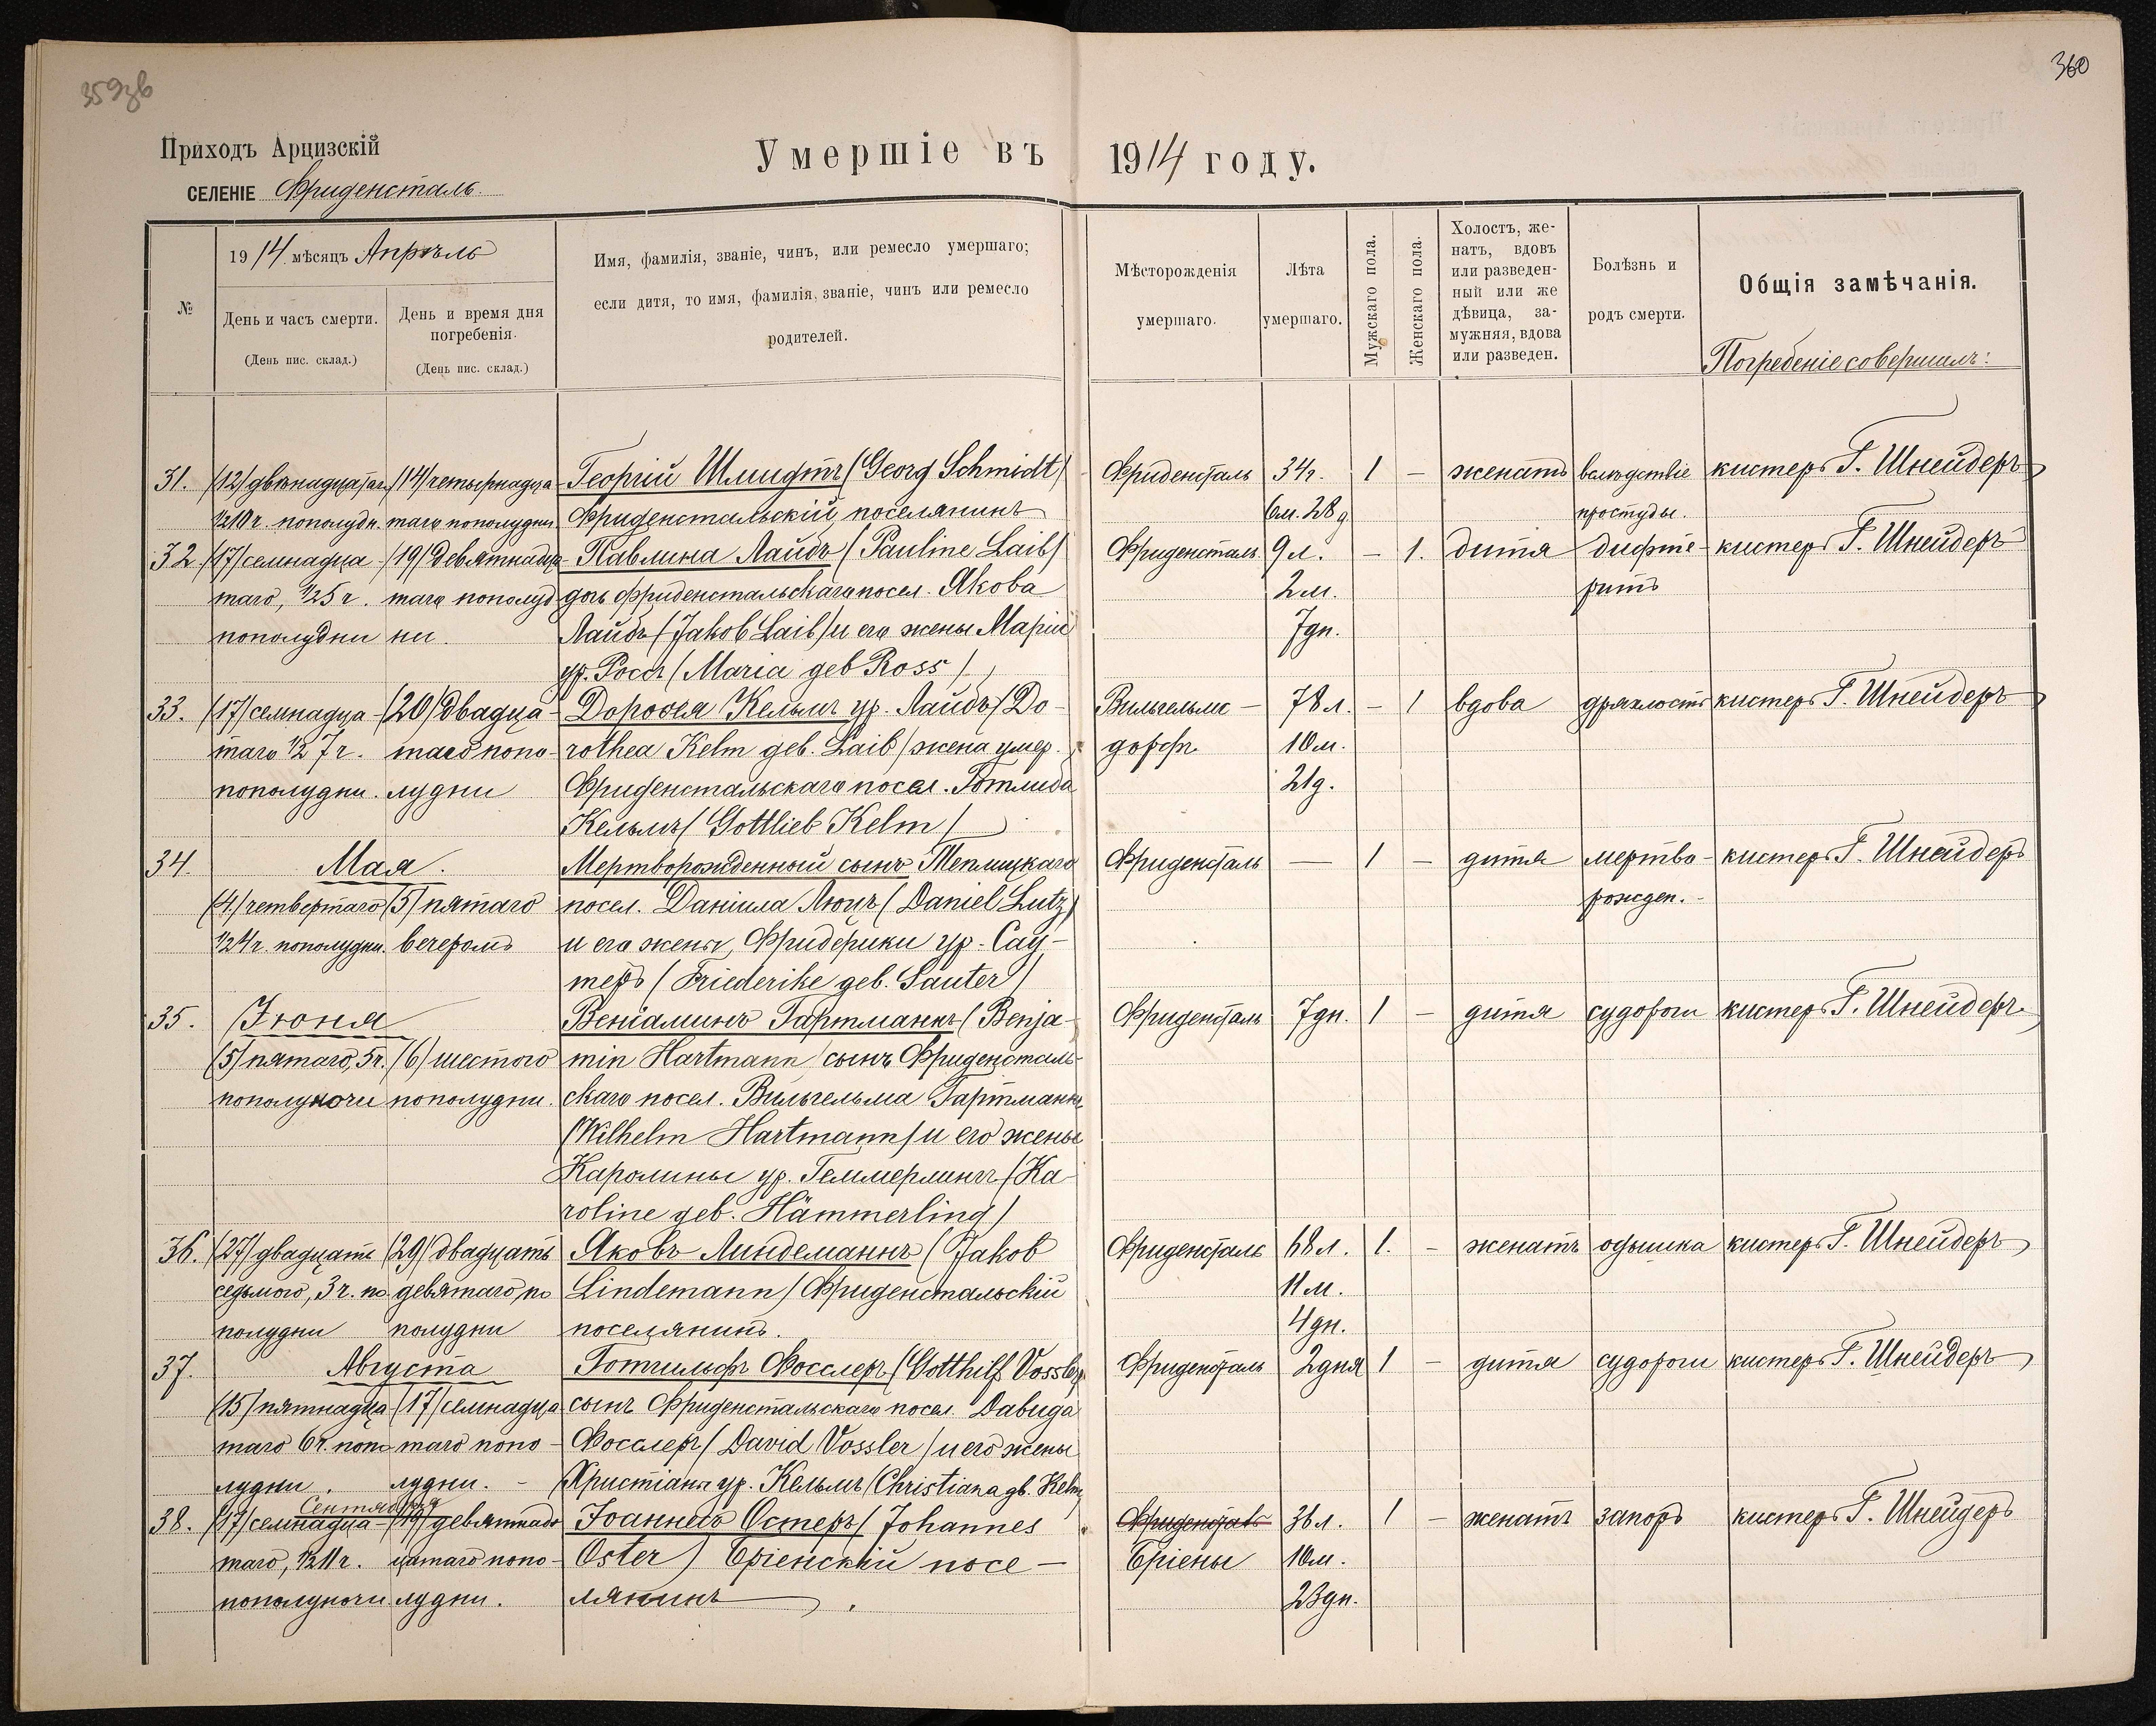 359зв
360
Приходъ Арцизскій
Умершіе въ 1914 году.
СЕЛЕНІЕ Фриденсталь.
№
1914 мѣсяцъ Апрѣль
День и часъ смерти.
(День пис. склад.)
День и время дня
погребенія.
(День пис. склад.)
Имя, фамилія, званіе, чинъ, или ремесло умершаго;
если дитя, то имя, фамилія, званіе, чинъ или ремесло
родителей.
Мѣсторожденія
умершаго.
Лѣта
умершаго.
Мужскаго пола.
Женскаго пола.
Холостъ, же-
натъ, вдовъ
или разведен-
ный или же
дѣвица, за-
мужняя, вдова
или разведен.
Болѣзнь и
родъ смерти.
Общія замѣчанія.
Погребеніе совершилъ:
31. (12) двѣнадцатаго (14) четырнадца- Георгій Шмидтъ (Georg Schmidt) Фриденсталь 34г. 1 — женатъ вслѣдствіе кистеръ Г. Шнейдеръ
½10 ч. пополудн. таго пополудни Фриденстальскій поселянинъ 6м. 28д простуды.
32. (17) семнадца- (19) девятнадца- Павлина Лайбъ (Pauline Laib) Фриденсталь 9 л. — 1. дитя дифте- кистеръ Г. Шнейдеръ
таго, ½5 ч. таго пополуд- дочь Фриденстальскаго посел. Якова 2 м. ритъ
пополудни ни. Лайбъ (Jakob Laib) и его жены Маріи 7 дн.
ур. Россъ (Maria geb Ross)
33. (17) семнадца- (20) двадца- Доровея Кельмъ ур. Лайбъ (Do- Вильгельмс- 78 л. — 1 вдова дряхлость кистеръ Г. Шнейдеръ
таго ½7 ч. таго попо- rothea Kelm geb. Laib) жена умер. дорфъ 10 м.
пополудни. лудни Фриденстальскаго посел. Готлиба 21 д.
Кельмъ (Gottlieb Kelm)
34. Мая. Мертворожденный сынъ Теплицкаго Фриденсталь — 1 — дитя мертво- кистеръ Г. Шнейдеръ
(4) четвертаго (5) пятаго посел. Даніила Люцъ (Daniel Lutz) рожден.
½4 ч. пополудни. вечеромъ и его жены Фридерики ур. Сау-
теръ (Friederike geb. Sauter)
35. Іюня Веніаминъ Гартманнъ (Benja- Фриденсталь 7 дн. 1 — дитя судороги кистеръ Г. Шнейдеръ.
(5) пятаго, 5 ч. (6) шестого min Hartmann) сынъ Фриденсталь-
пополуночи пополудни. скаго посел. Вильгельма Гартманнъ
(Wilhelm Hartmann) и его жены
Каролины ур. Геммерлингъ (Ka-
roline geb. Hämmerling)
36. (27) двадцать (29) двадцать Яковъ Линдеманнъ (Jakob Фриденсталь 68 л. 1. — женатъ одышка кистеръ Г. Шнейдеръ
седьмого, 3 ч. по- девятаго, по- Lindemann) Фриденстальскій 11 м.
полудни полудни поселянинъ. 4 дн.
37. Августа Готгильфъ Фосслеръ (Gotthilf Vossler) Фриденсталь 2 дня 1 — дитя судороги кистеръ Г. Шнейдеръ
(15) пятнадца- (17) семнадца- сынъ Фриденстальскаго посел. Давида
таго 6 ч. попо- таго попо- Фосслеръ (David Vossler) и его жены
лудни. лудни. Христіаны ур. Кельмъ (Christiana gb. Kelm)
Сентября
38. (17) семнадца- (19) девятнад- Іоаннесъ Остеръ (Johannes Фриденсталь 36 л. 1 — женатъ запоръ кистеръ Г. Шнейдеръ
таго, ½11 ч. цатаго попо- Oster) Бріенскій посе- Бріены 10 м.
пополуночи лудни. лянинъ. 23 дн.